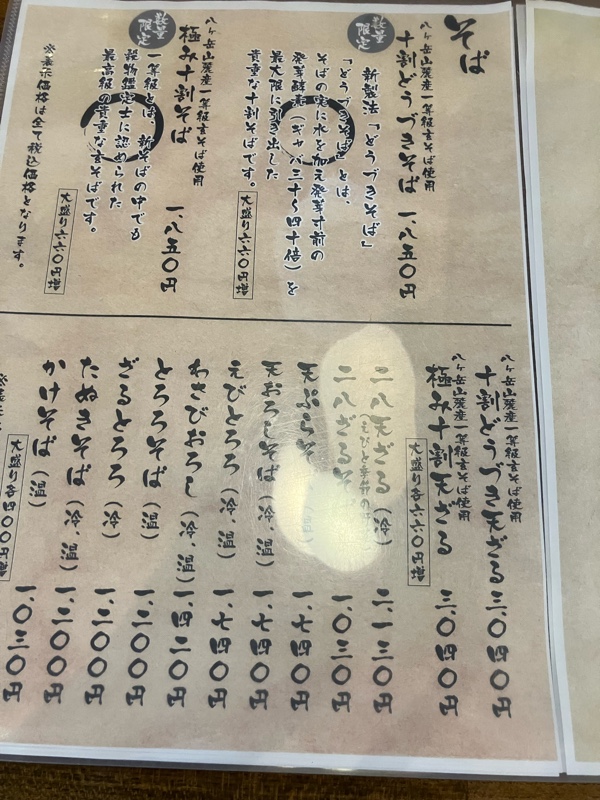 そば
八ヶ岳山麓産一等級玄そば使用
十割どうづきそば 一、八五〇円
数量限定
新製法「どうづきそば」
「どうづきそば」とは、
そばの実に水を加え発芽寸前の
発芽酵素(ギャバ三十〜四十倍)を
最大限に引き出した
貴重な十割そばです。
大盛り六六〇円増
八ヶ岳山麓産一等級玄そば使用
極み十割そば 一、八五〇円
数量限定
一等級とは、新そばの中でも
穀物鑑定士に認められた
最高級の貴重な玄そばです。
大盛り六六〇円増
※表示価格は全て税込価格となります。
八ヶ岳山麓産一等級玄そば使用
十割どうづき天ざる 三、〇四〇円
八ヶ岳山麓産一等級玄そば使用
極み十割天ざる 三、〇四〇円
大盛り各六六〇円増
二八天ざる(冷) 二、一三〇円
(えびと季節の
二八ざるそ 一、〇三〇円
天ぷらそ 温) 一、七四〇円
天おろしそば(冷、温) 一、七四〇円
えびとろろ(冷、温) 一、七四〇円
わさびおろし(冷、温) 一、四二〇円
とろろそば(温) 一、二〇〇円
ざるとろろ(冷) 一、二〇〇円
たぬきそば(冷、温) 一、二〇〇円
かけそば(温) 一、〇三〇円
大盛り各四〇〇円増